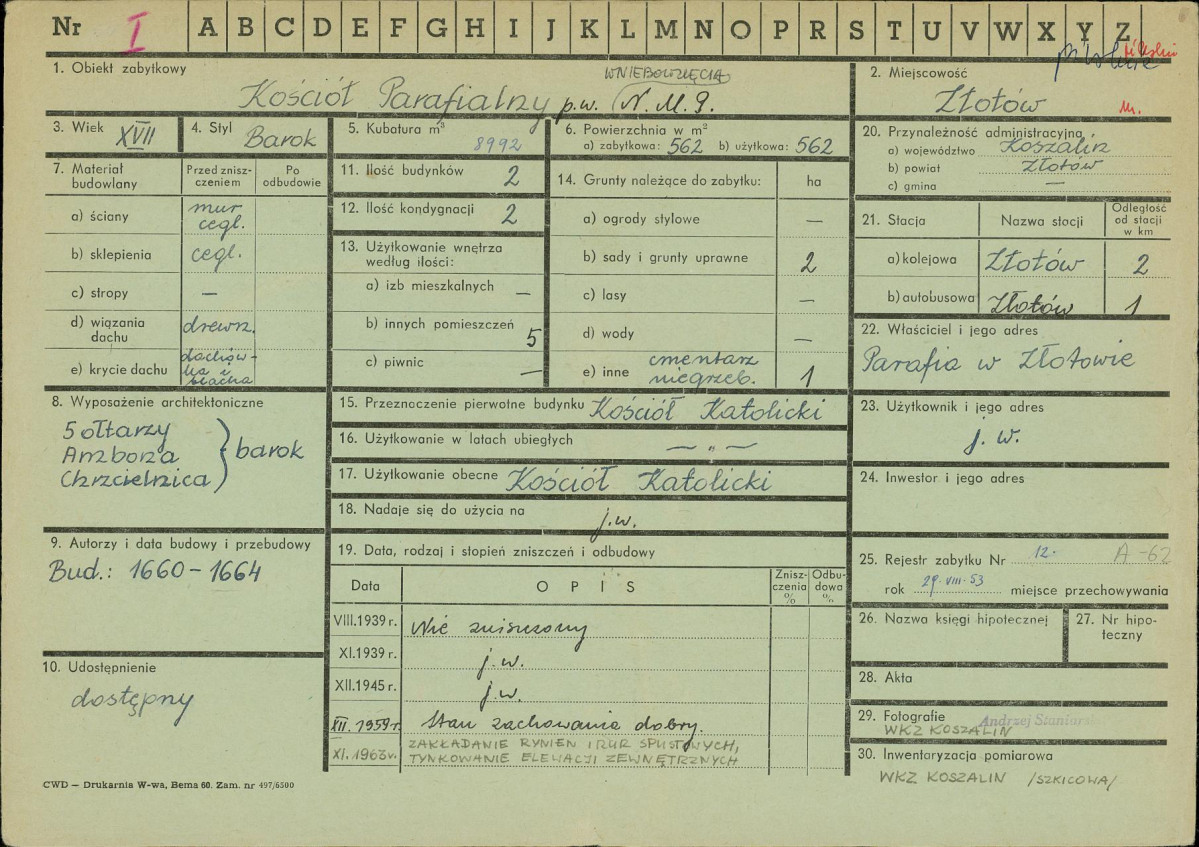 Nr I A B C D E F G H I J K L M N O P R S T U V W X Y Z
1. Obiekt zabytkowy
WNIEBOWZIĘCIA
Kościół Parafialny p.w. N.M.P.
2. Miejscowość
Złotów
3. Wiek XVII
4. Styl Barok
5. Kubatura m³ 8992
6. Powierzchnia w m²
a) zabytkowa: 562 b) użytkowa: 562
7. Materiał budowlany
Przed zniszczeniem
Po odbudowie
a) ściany mur cegl.
b) sklepienia cegl.
c) stropy —
d) wiązania dachu drewn.
e) krycie dachu dachówka i blacha
8. Wyposażenie architektoniczne
5 ołtarzy
Ambona
Chrzcielnica
barok
9. Autorzy i data budowy i przebudowy
Bud.: 1660 – 1664
10. Udostępnienie
dostępny
11. Ilość budynków 2
12. Ilość kondygnacji 2
13. Użytkowanie wnętrza
według ilości:
a) izb mieszkalnych —
b) innych pomieszczeń 5
c) piwnic —
14. Grunty należące do zabytku: ha
a) ogrody stylowe —
b) sady i grunty uprawne 2
c) lasy —
d) wody —
e) inne cmentarz niegrzeb. 1
15. Przeznoczenie pierwotne budynku Kościół Katolicki
16. Użytkowanie w latach ubiegłych — „ —
17. Użytkowanie obecne Kościół Katolicki
18. Nadaje się do użycia na j.w.
19. Data, rodzaj i stopień zniszczeń i odbudowy
Data OPIS Zniszczenia % Odbudowa %
VIII.1939 r. Nie zniszczony
XI.1939 r. j.w.
XII.1945 r. j.w.
XII. 1959r. Stan zachowania dobry.
XI. 1963r. ZAKŁADANIE RYNIEN I RUR SPUSTOWYCH,
TYNKOWANIE ELEWACJI ZEWNĘTRZNYCH
20. Przynależność administracyjna
a) województwo Koszalin
b) powiat Złotów
c) gmina —
21. Stacja Nazwa stacji Odległość od stacji w km
a) kolejowa Złotów 2
b) autobusowa Złotów 1
22. Właściciel i jego adres
Parafia w Złotowie
23. Użytkownik i jego adres
j.w.
24. Inwestor i jego adres
25. Rejestr zabytku Nr 12. A-62
rok 29.VIII.53 miejsce przechowywania
26. Nazwa księgi hipotecznej
27. Nr hipoteczny
28. Akta
29. Fotografie Andrzej
WKZ KOSZALIN
30. Inwentaryzacja pomiarowa
WKZ KOSZALIN /SZKICOWA/
CWD — Drukarnia W-wa, Bema 60. Zam. nr 497/6500